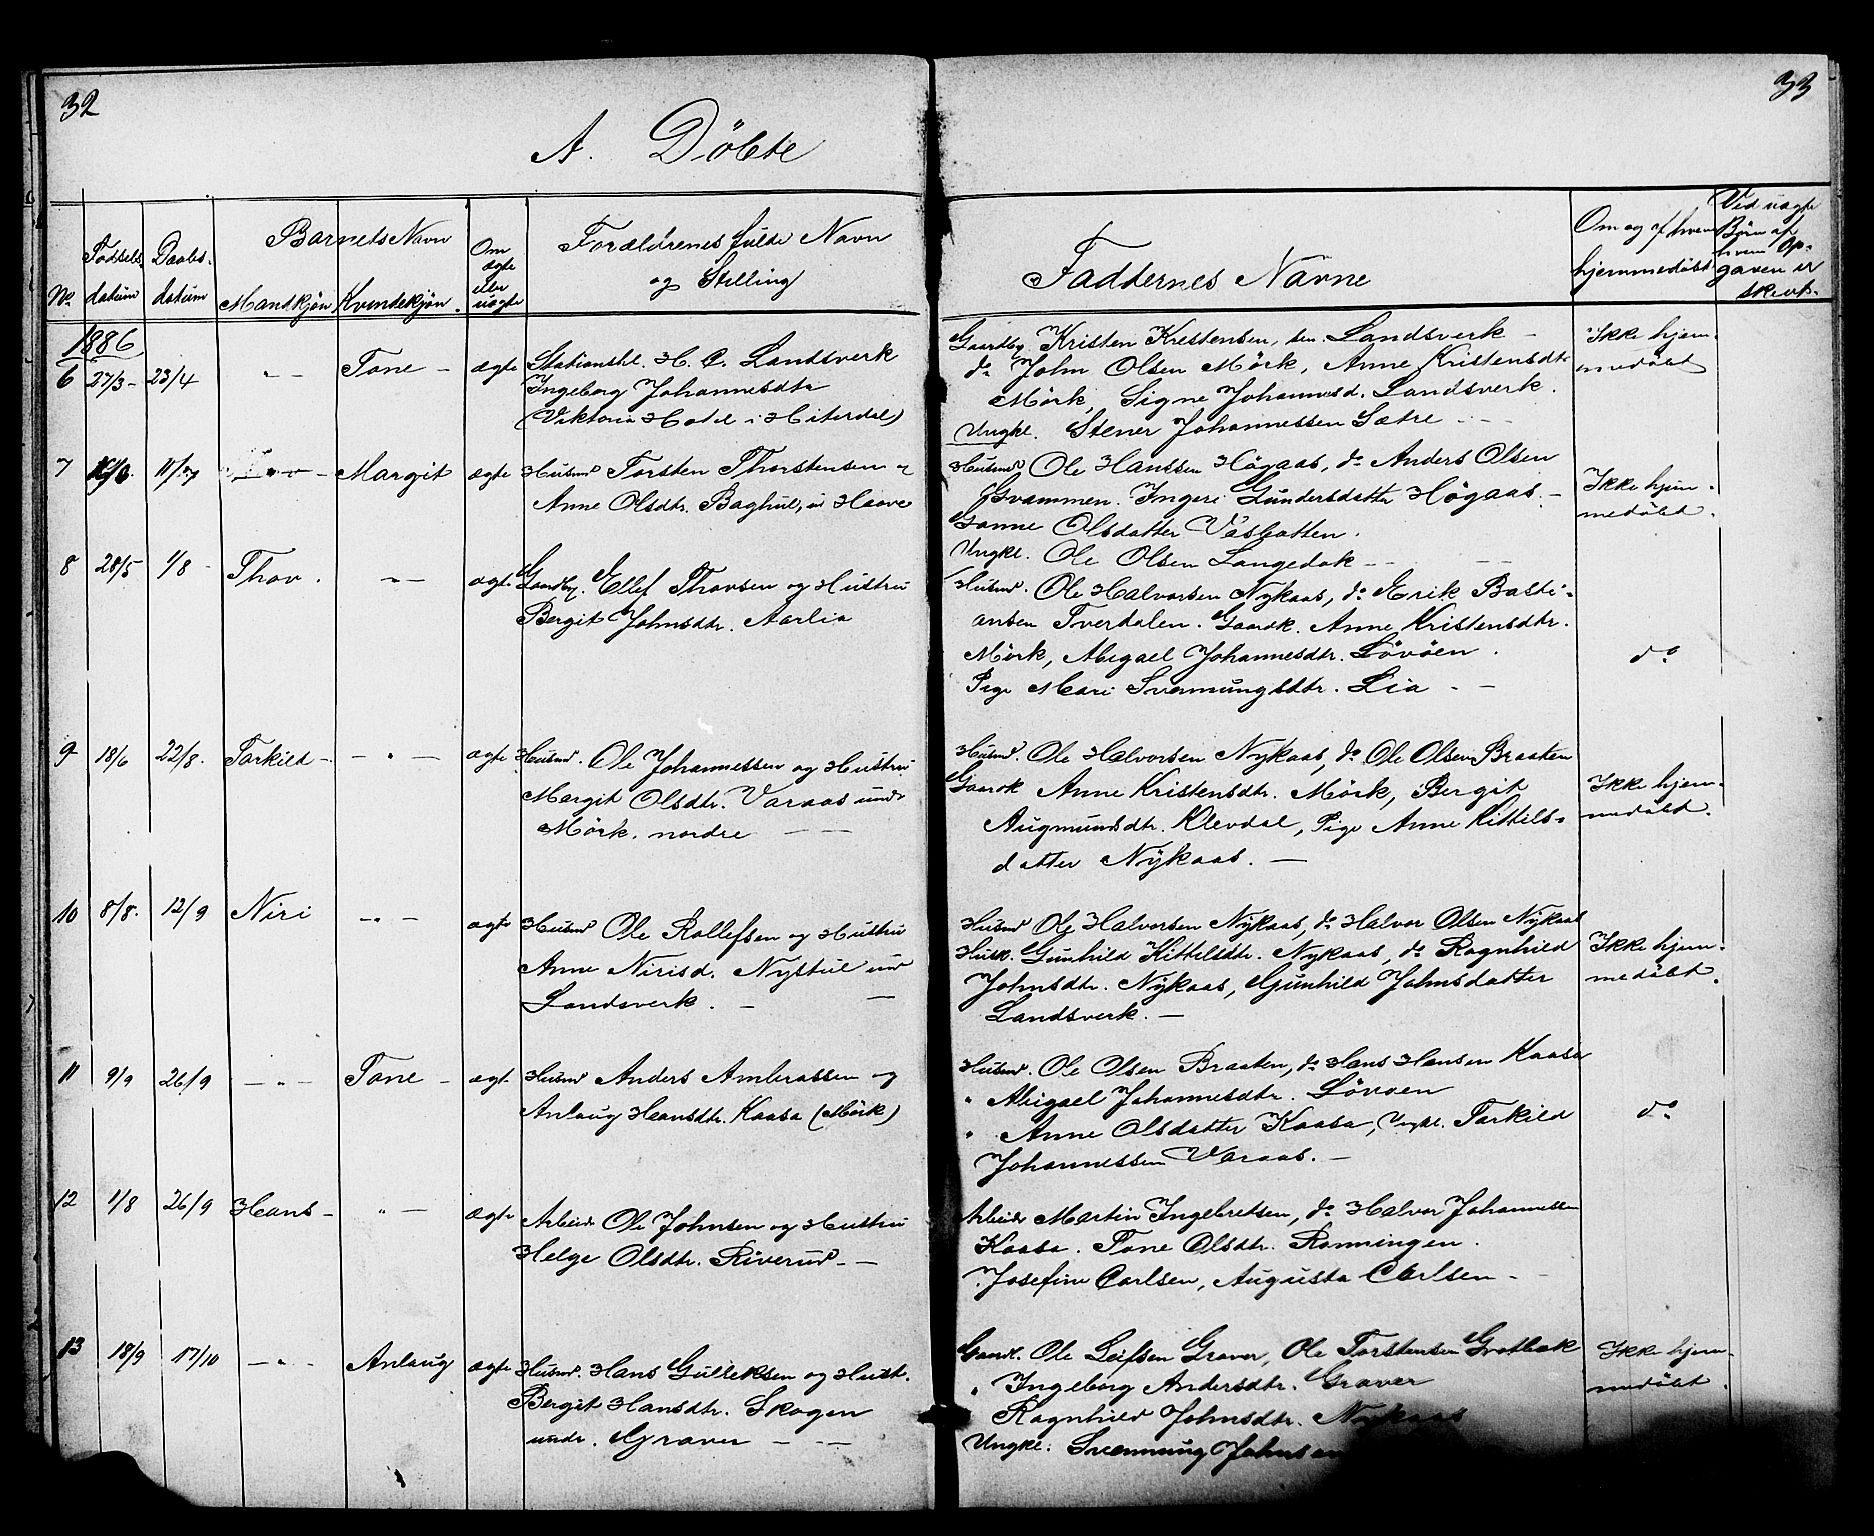 32
33
A. Döbte
No.
Födsels-
datum
Daabs-
datum
Barnets Navn
Mandkjön
Kvindekjön.
Om
ægte
eller
uægte
Forældrenes fulde Navn
og Stilling
Faddernes Navne
Om og af hvem
hjemmedöbt
Ved uægte
Börn af
hvem Op-
gaven er
skevet.
1886
6 27/3 - 23/4 - " - Tone - ægte
Stationshl. H. C. Landsverk
Ingeborg Johannesdtr
(Viktoria Hotel i Hiterdal)
Gaardbg Kristen Krestensen, Landsverk -
do John Olsen Mörk, Anne Kristensdtr
Mörk, Signe Johannesd. Landsverk.
Ungkl. Stener Johannessen Sætre - - -
Ikke hjem-
medöbt
7 11/7 - " - Margit ægte
Husmd Torsten Thorstensen og
Anne Olsdtr. Baghul, u Haave
Husmd Ole Hanssen Högaas, do Anders Olsen
Gvammen. Ingeri Gundersdatter Högaas. -
Olsdatter
Ungkl. Ole Olsen Langedok - - -
Ikke hjem-
medöbt.
8 28/5 1/8 - Thov. - " - ægte
Gaardbg. Ellef Thovsen og Hustru
Bergit Johnsdtr. Aarlia
Husmd. Ole Halvorsen Nykaas, do Erik Basti-
ansen Tverdalen. Gaardk. Anne Kristensdtr.
Mörk, Abigael Johannesdtr. Lövöen.
Pige Mari Svenungsdtr. Lia - -
do
9 18/6 22/8. Tarkild - - " - ægte
Husmd. Ole Johannessen og Hustru
Margit Olsdtr. Varaas undr
Mörk. nordre - -
Husmd. Ole Halvorsen Nykaas, do Ole Olsen Braaten
Gaardk Anne Kristensdtr. Mörk, Bergit
Augmundsdtr. Klevdal, Pige Anne Kittils-
datter Nykaas. -
Ikke hjem-
medöbt.
10 8/8. 12/9 Niri - " - ægte
Husmd Ole Rollefsen og Hustru
Anne Nirisd. Nystul und
Landsverk. - -
Husmd Ole Halvorsen Nykaas, do Halvor Olsen Nykaas
Husk. Gunhild Kittelsdtr. Nykaas, do Ragnhild
Johnsdtr. Nykaas, Gunhild Johnsdatter
Landsverk. -
Ikke hjem-
medöbt.
11 9/9 26/9 - " - Tone - ægt.
Husmd Anders Ambrossen og
Anlaug Hansdtr. Kaasa (Mörk)
Husmd. Ole Olsen Braaten, do Hans Hansen Kaasa
" Abigael Johannesdtr. Lövöen
" Anne Olsdatter Kaasa, Ungkl. Tarkild
Johannessen Varaas. -
do
12 1/8 26/9 Hans - " - ægte
Arbeidr Ole Johnsen og Hustru
Helge Olsdtr. Riverud - -
Arbeidr Martin Ingebretsen, do Halvor Johannessen
Kaasa. Tone Olsdtr. Ronningen.
Josefine Carlsen, Augusta Carlsen - -
13 18/9 17/10 - " - Anlaug ægte
Husmd. Hans Gulleksen og Hust.
Bergit Hansdtr. Skogen
undr. Graver - - -
Gaardb. Ole Leifsen Graver, Ole Torstensen Grotbæk
" Ingeborg Andersdtr. Graver
Ragnhild Johnsdtr. Nykaas
Ungkl. Svennung Johnsen
Ikke hjem-
medöbt.